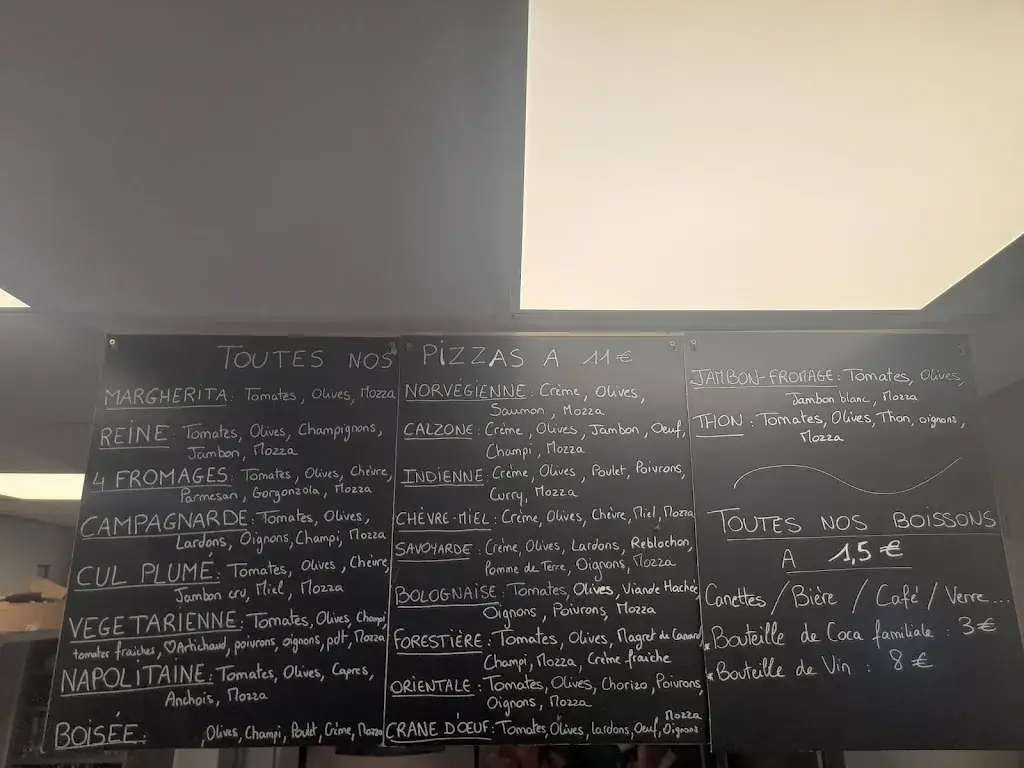 TOUTES NOS PIZZAS A 11€
MARGHERITA : Tomates, Olives, Mozza
REINE : Tomates, Olives, Champignons,
Jambon, Mozza
4 FROMAGES : Tomates, Olives, Chèvre,
Parmesan, Gorgonzola, Mozza
CAMPAGNARDE : Tomates, Olives,
Lardons, Oignons, Champi, Mozza
CUL PLUMÉ : Tomates, Olives, Chèvre,
Jambon cru, Miel, Mozza
VEGETARIENNE : Tomates, Olives, Champi,
tomates fraiches, Artichaud, poivrons, oignons, pdt, Mozza
NAPOLITAINE : Tomates, Olives, Capres,
Anchois, Mozza
BOISÉE : Olives, Champi, Poulet, Crème, Mozza
NORVÉGIENNE : Crème, Olives,
Saumon, Mozza
CALZONE : Crème, Olives, Jambon, Oeuf,
Champi, Mozza
INDIENNE : Crème, Olives, Poulet, Poivrons,
Curry, Mozza
CHÈVRE-MIEL : Crème, Olives, Chèvre, Miel, Mozza
SAVOYARDE : Crème, Olives, Lardons, Reblochon,
Pomme de Terre, Oignons, Mozza
BOLOGNAISE : Tomates, Olives, Viande Hachée
Oignons, Poivrons, Mozza
FORESTIÈRE : Tomates, Olives, Magret de Canard,
Champi, Mozza, Crème fraiche
ORIENTALE : Tomates, Olives, Chorizo, Poivrons,
Oignons, Mozza
CRANE D'ŒUF : Tomates, Olives, lardons, Oeuf, Oignons
Mozza
JAMBON-FROMAGE : Tomates, Olives,
Jambon blanc, Mozza
THON : Tomates, Olives, Thon, oignons,
Mozza
TOUTES NOS BOISSONS
A 1,5€
Canettes / Bière / Café / Verre...
*Bouteille de Coca familiale : 3€
*Bouteille de Vin : 8€